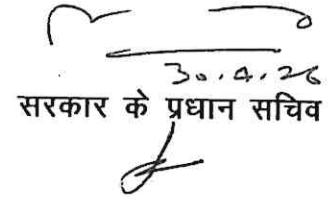 30.4.26
सरकार के प्रधान सचिव